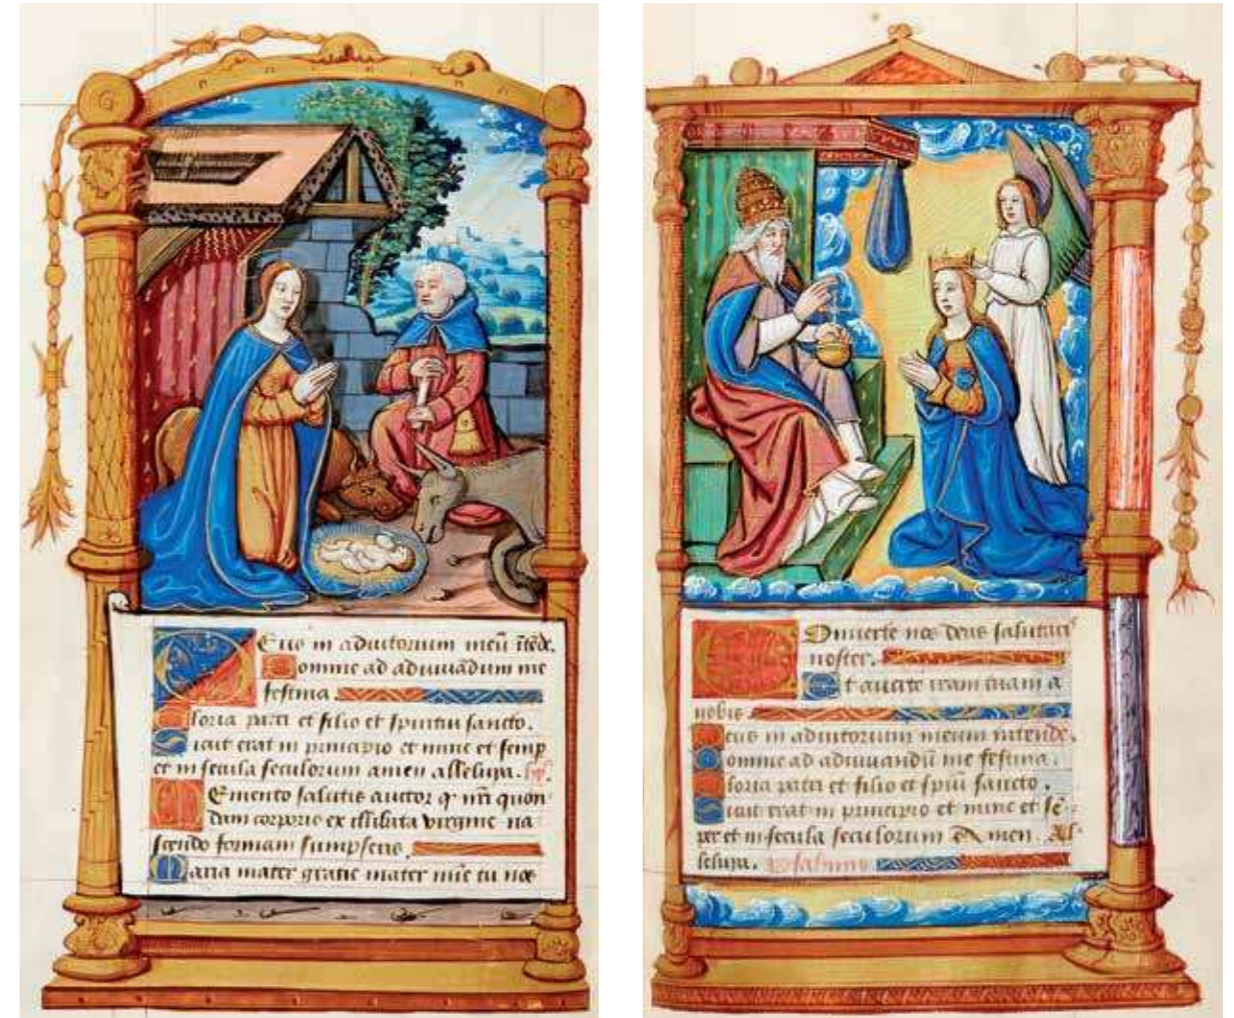 Deus in adiutorium meūītēde.
Domine ad adiuuādum me
festina.
Gloria patri et filio et spiritui sancto.
Sicut erat in principio et nunc et semp
et in secula seculorum amen alleluya.
Memento salutis auctor q nr̄i quon
dam corporis ex illibata virgine na
scendo formam sumpseris.
Maria mater gratie mater mīe tu nos
Conuerte nos deus salutaris
noster.
Et auerte iram tuam a
nobis.
Deus in adiutorium meum intende.
Domine ad adiuuandū me festina.
Gloria patri et filio et spiūi sancto.
Sicut erat in principio et nunc et sē
per et in secula seculorum Amen. Al
leluya. Psalmus